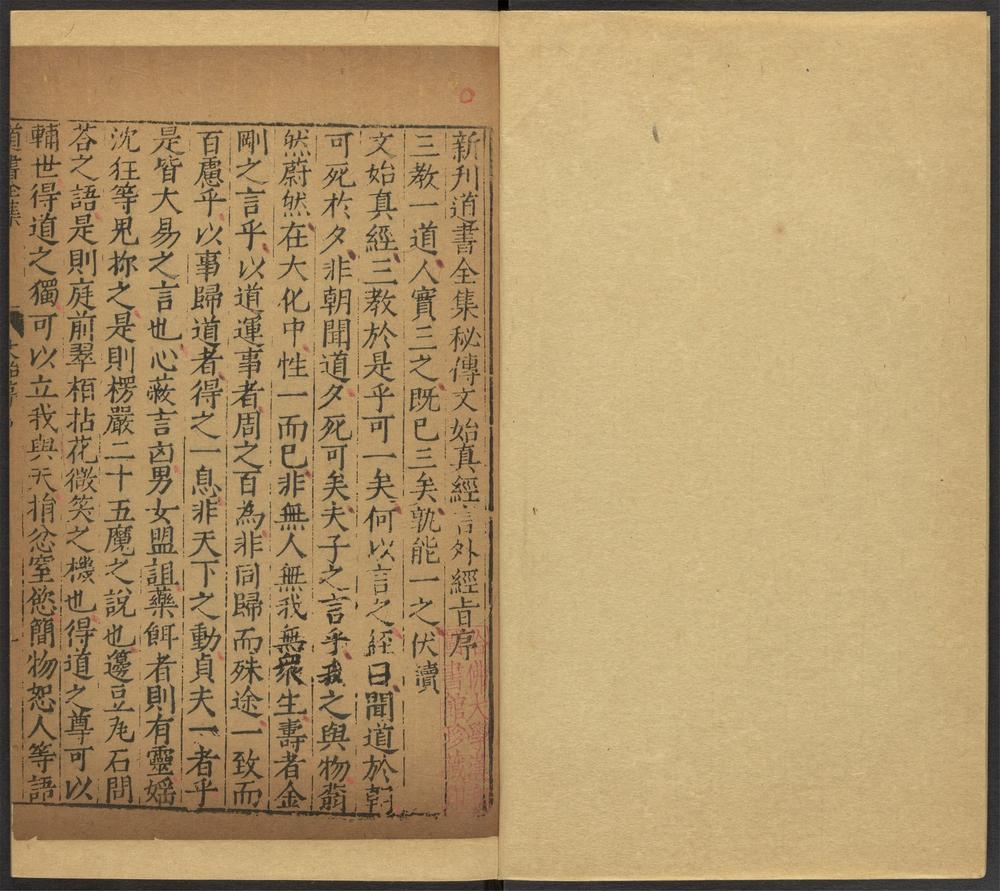 新刋道書全集秘傳文始真經言外經旨序
三教一道人實三之既已三矣孰能一之伏讀
文始真經三教於是乎可一矣何以言之經曰聞道於朝
可死於夕非朝聞道夕死可矣夫子之言乎我之與物蓊
然蔚然在大化中性一而已非無人無我無衆生壽者金
剛之言乎以道運事者周之百為非同歸而殊途一致而
百慮乎以事歸道者得之一息非天下之動貞夫一者乎
是皆大易之言也心蔽言凶男女盟詛藥餌者則有靈婬
沈狂等鬼祢之是則楞嚴二十五魔之說也籩豆尾石問
荅之語是則庭前翠栢拈花微笑之機也得道之尊可以
輔世得道之獨可以立我與夫捐忿窒慾簡物恕人等語
道書全集
哈佛大學漢和圖書館珍藏印